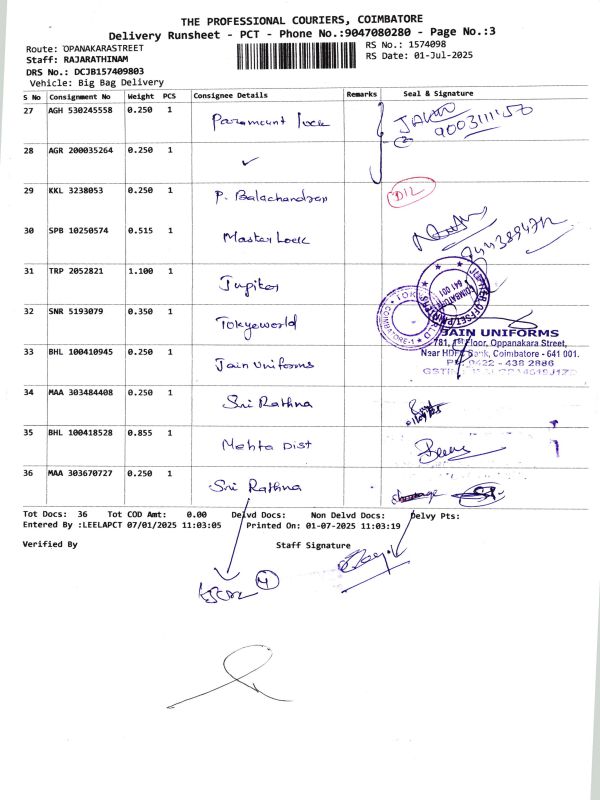 THE PROFESSIONAL COURIERS, COIMBATORE
Delivery Runsheet - PCT - Phone No.:9047080280 - Page No.:3
Route: OPANAKARASTREET
RS No.: 1574098
Staff: RAJARATHINAM
RS Date: 01-Jul-2025
DRS No.: DCJB157409803
Vehicle: Big Bag Delivery
S No Consignment No Weight PCS Consignee Details Remarks Seal & Signature
27 AGH 530245558 0.250 1 Paramount lock
9003111150
28 AGR 200035264 0.250 1 ✓
29 KKL 3238053 0.250 1 P. Balachandran D12
30 SPB 10250574 0.515 1 Master Lock
31 TRP 2052821 1.100 1 Jupiter
32 SNR 5193079 0.350 1 Tokyoworld
COIMBATORE
641 001
COIMBATORE-1
33 BHL 100410945 0.250 1 Jain Uniforms
JAIN UNIFORMS
781, 1st Floor, Oppanakara Street,
Near HDFC Bank, Coimbatore - 641 001.
0422 - 438 2886
34 MAA 303484408 0.250 1 Sri Rathna
35 BHL 100418528 0.855 1 Mehta Dist
36 MAA 303670727 0.250 1 Sri Rathna
Tot Docs: 36 Tot COD Amt: 0.00 Delvd Docs: Non Delvd Docs: Delvy Pts:
Entered By :LEELAPCT 07/01/2025 11:03:05 Printed On: 01-07-2025 11:03:19
Verified By Staff Signature